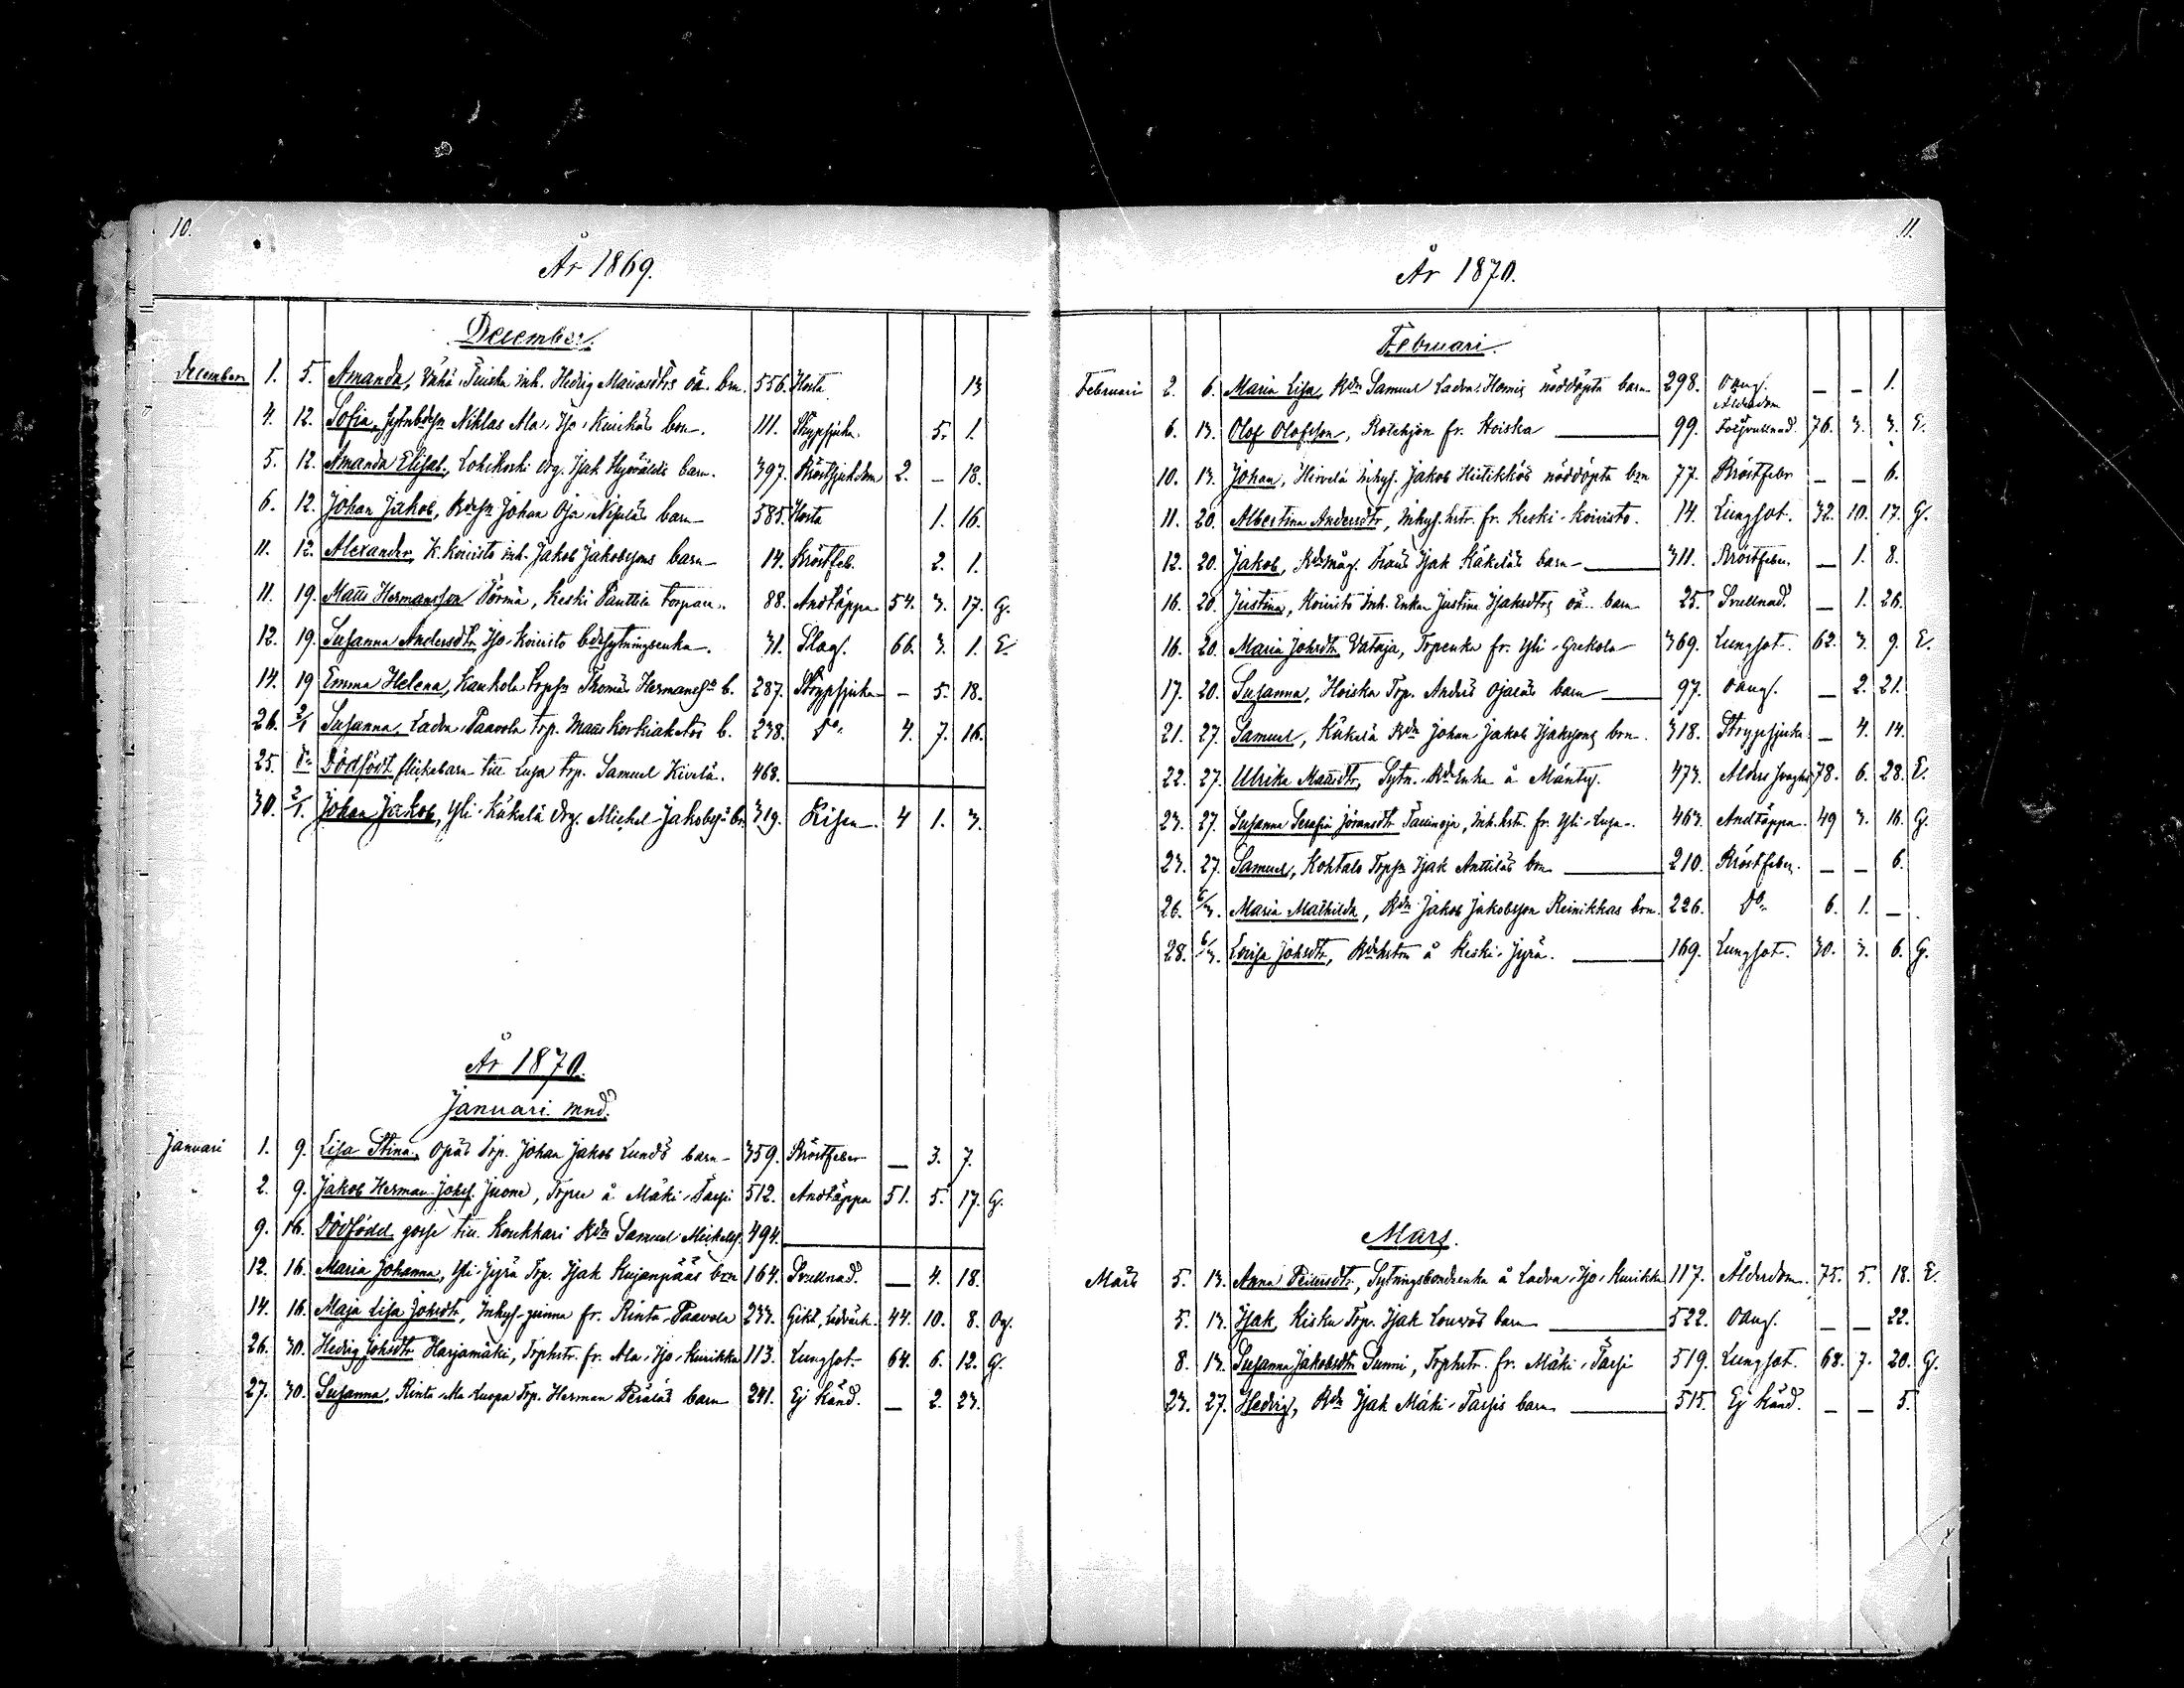 10.
År 1869.
December.
December 1. 5. Amanda, Vähä Tuisku inh. Hedvig Mariasdtrs oä. bn. 556. Hosta 13
4. 12. Sofia, Sytnbdesn Niklas Ala, Iso, Kurikäs bn. 111. Strypsjuka. 5. 1.
5. 12. Amanda Elisab., Lohikoski drg. Isak barn. 397. Bröstsjukdom 2. – 18.
6. 12. Johan Jakob, Bdesn Johan Oja barn 585. Hosta 1. 16.
11. 12. Alexander, K. Koivisto inh. Jakob Jakobssons barn 14. Bröstfeb. 2. 1.
11. 19. Matts Hermansson Törmä, Keski Panttila torpare. 88. Andtäppa 54. 3. 17. G.
12. 19. Susanna Andersdtr Iso-Koivisto bdesytningsenka. 31. Slag. 66. 3. 1. E.
14. 19 Emma Helena, Kankola torpsn Thomas Hermanss b. 287. Strypsjuka – 5. 18.
26. 2/1 Susanna, Ladva-Paavola trp. Matts Korkiakoskis b. 238. Do. 4. 7. 16.
25. Do Dödfödt flickebarn till Lusa trp. Samuel Kivelä. 468.
30. 2/1. Johan Jakob, Yli-Käkelä drg. Michel Jakobss bn. 319. Risen 4 1. 3.
År 1870.
Januari mnd.
Januari 1. 9. Lisa Stina, Opas trp. Johan Jakob Lunds barn 359. Bröstfeber — 3. 7.
2. 9. Jakob Herman Johss. Juone, Torpare å Mäki-Tarsi 512. Andtäppa 51. 5. 17. G.
9. 16. Dödfödd gosse till Konkkari Bdn Samuel Michelss. 494.
12. 16. Maria Johanna, Yli-Jyrä Trp. Isak Kujanpääs brn 164. Svullnad. — 4. 18.
14. 16. Maja Lisa Johsdtr, Inhys-qvinna fr. Rinta-Paavola 233. Gikt, Ledvärk. 44. 10. 8. Og.
26. 30. Hedvig Johsdtr Harjamäki, Trphstr. fr. Ala-Iso-Kurikka 113. Lungsot. 64. 6. 12. G.
27. 30. Susanna, Rinta-Ala Luopa Trp. Herman Peräläs barn 241. Ej känd. — 2. 23.
11.
År 1870.
Februari.
Februari 2. 6. Maria Lisa, Bdn Samuel Ladva-Homis nöddöpta barn 298. Oang. — — 1.
6. 13. Olof Olofsson, Rotehjon fr. Koiska 99. Ålderdom Försvullnad. 76. 3. 3. E.
10. 13. Johan, Hirvelä inhys. Jakob nöddöpta brn 77. Bröstfeber — — 6.
11. 20. Albertina Andersdtr, Inhys. hstr. fr. Keski-Koivisto. 14. Lungsot. 32. 10. 17. G.
12. 20. Jakob, Bdemåg. Frans Isak Käkeläs barn 311. Bröstfeber. — 1. 8.
16. 20. Justina, Koivisto Inh. Enkan Justina Isaksdtrs oä. barn 25. Svullnad. — 1. 26.
16. 20. Maria Johsdtr Vataja, Torpenka fr. Yli-Grekola 369. Lungsot. 62. 3. 9. E.
17. 20. Susanna, Koiska Trp. Anders Ojaläs barn 97. Oang. — 2. 21.
21. 27. Samuel, Käkelä Bdn Johan Jakob Isakssons brn 318. Strypsjuka — 4. 14.
22. 27. Ulrika Mattsdtr, Sytn. BdEnka å Mänty. 473. Ålders svaghet 78. 6. 28. E.
23. 27. Susanna Serafia Göransdtr Tauinoja, Inh. hstr. fr. Yli-Lusa. 463. Andtäppa. 49 3. 16. G.
23. 27. Samuel, Kohtala Torpsn Isak Anttiläs brn 210. Bröstfeber. — — 6.
26. 6/3. Maria Mathilda, Bdn Jakob Jakobsson Reinikkas brn. 226. Do. 6. 1. —
28. 6/3. Lovisa Johsdtr, Bdehstrn å Keski-Jyrä. 169. Lungsot. 30. 3. 6. G.
Mars.
Mars 5. 13. Anna Persdtr, Sytningsbondeenka å Ladva-Iso-Kurikka 117. Ålderdom. 75. 5. 18. E.
5. 13. Isak, Kisku Trp. Isak barn 522. Oang. — — 22.
8. 13. Susanna Jakobsdtr Sunni, Trphstr. fr. Mäki-Tarsi 519. Lungsot. 68. 7. 20. G.
23. 27. Hedvig, Bdn Isak Mäki-Tarsis barn 515. Ej känd. — — 5.